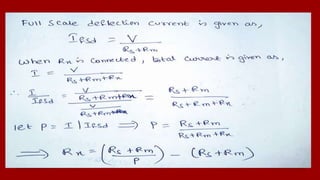 Full scale deflection current is given as,
I_fsd = V / (Rs + Rm)
When Rx is connected, total current is given as,
I = V / (Rs + Rm + Rx)
∴ I / I_fsd = (V / (Rs + Rm + Rx)) / (V / (Rs + Rm)) = (Rs + Rm) / (Rs + Rm + Rx)
let P = I | I_fsd ⟹ P = (Rs + Rm) / (Rs + Rm + Rx)
⟹ Rx = ((Rs + Rm) / P) – (Rs + Rm)